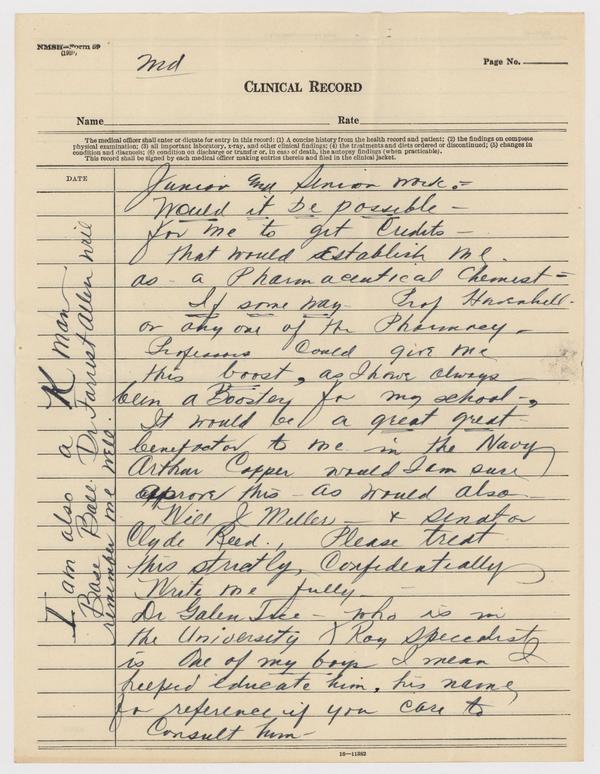 NMSH—Form 59
(1929)
Md
Page No.
CLINICAL RECORD
Name
Rate
The medical officer shall enter or dictate for entry in this record: (1) A concise history from the health record and patient; (2) the findings on complete
physical examination; (3) all important laboratory, x-ray, and other clinical findings; (4) the treatments and diets ordered or discontinued; (5) changes in
condition and diagnosis; (6) condition on discharge or transfer or, in case of death, the autopsy findings (when practicable).
This record shall be signed by each medical officer making entries therein and filed in the clinical jacket.
DATE
Junior and Senior work =
Would it be possible –
for me to get Credits –
that would Establish me
as – a Pharmaceutical Chemist =
If some way – Prof Havenhill –
or any one of the Pharmacy –
Professors Could give me
this boost, as I have always
been a Booster for my school –,
It would be a great great
benefactor to me in the Navy
Arthur Capper would I am sure
approve this – as would also –
Will J Miller – & Senator
Clyde Reed., Please treat
this strictly, Confidentially
Write me fully –
Dr Galen Tice – who is in
the University X Ray Specialist
is One of my boys I mean I
helped educate him, his name,
for reference if you care to
Consult him –
I am also a K man –
Base Base Dr Forrest Allen will
remember me well.
16—11382